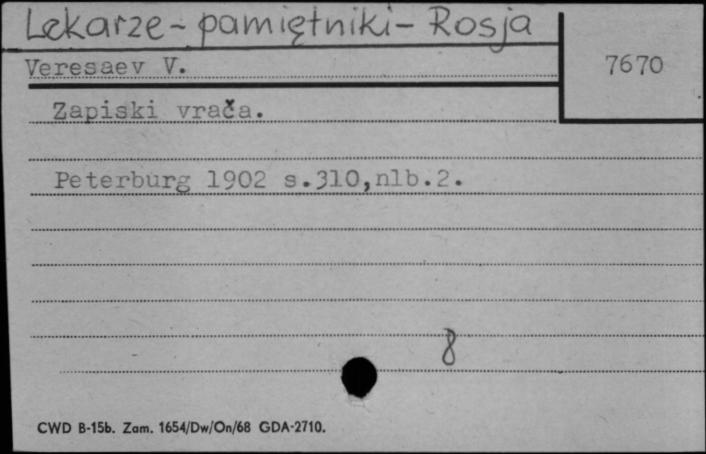 Lekarze - pamiętniki - Rosja
7670
Veresaev V.
Zapiski vrača.
Peterburg 1902 s.310,nlb.2.
8
CWD B-15b. Zam. 1654/Dw/On/68 GDA-2710.